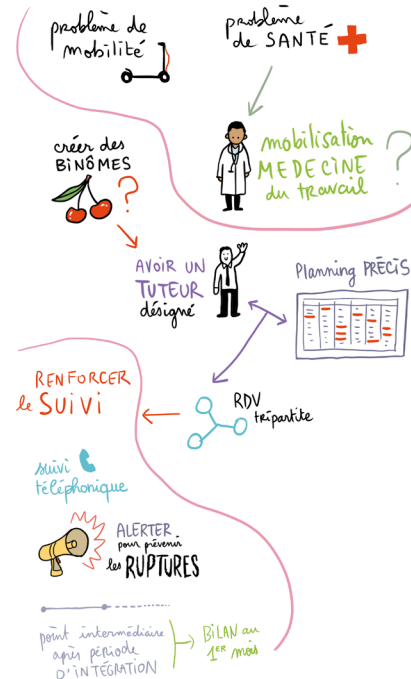 problème de
mobilité
problème
de SANTÉ
créer des
BINÔMES
?
mobilisation
MEDECINE
du travail
?
AVOIR UN
TUTEUR
désigné
Planning PRÉCIS
RENFORCER
le SUiVi
RDV
tripartite
suivi
téléphonique
ALERTER
pour prévenir
les RUPTURES
point intermédiaire
après période
D'iNTÉGRATiON
BiLAN au
1ER mois